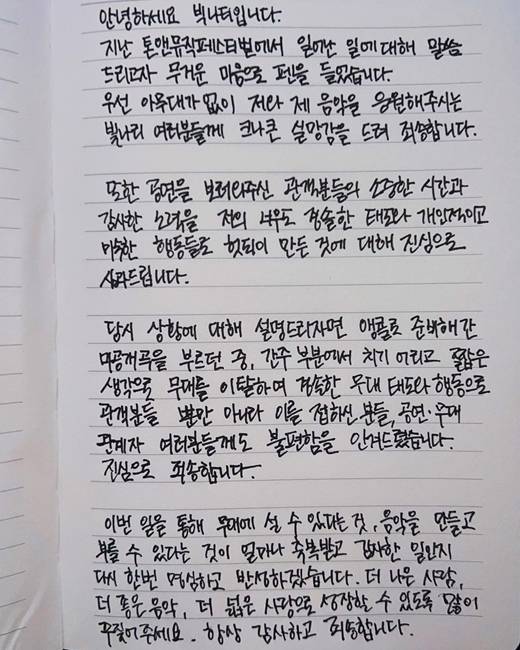 안녕하세요 빅나티입니다.
지난 톤앤뮤직페스티벌에서 일어난 일에 대해 말씀
드리고자 무거운 마음으로 펜을 들었습니다.
우선 아무대가 없이 저와 제 음악을 응원해주시는
빛나리 여러분들께 크나큰 실망감을 드려 죄송합니다.
또한 공연을 보러와주신 관객분들의 소중한 시간과
감사한 노력을 저의 너무도 경솔한 태도와 개인적이고
미숙한 행동들로 헛되이 만든 것에 대해 진심으로
사과드립니다.
당시 상황에 대해 설명드리자면 앵콜로 준비해간
미공개곡을 부르던 중, 간주 부분에서 치기 어리고 짧은
생각으로 무대를 이탈하며 경솔한 무대 태도와 행동으로
관객분들 뿐만 아니라 이를 접하신 분들, 공연·무대
관계자 여러분들께도 불편함을 안겨드렸습니다.
진심으로 죄송합니다.
이번 일을 통해 무대에 설 수 있다는 것, 음악을 만들고
부를 수 있다는 것이 얼마나 축복받고 감사한 일인지
다시 한번 명심하고 반성하겠습니다. 더 나은 사람,
더 좋은 음악, 더 넓은 사랑으로 성장할 수 있도록 많이
꾸짖어주세요. 항상 감사하고 죄송합니다.